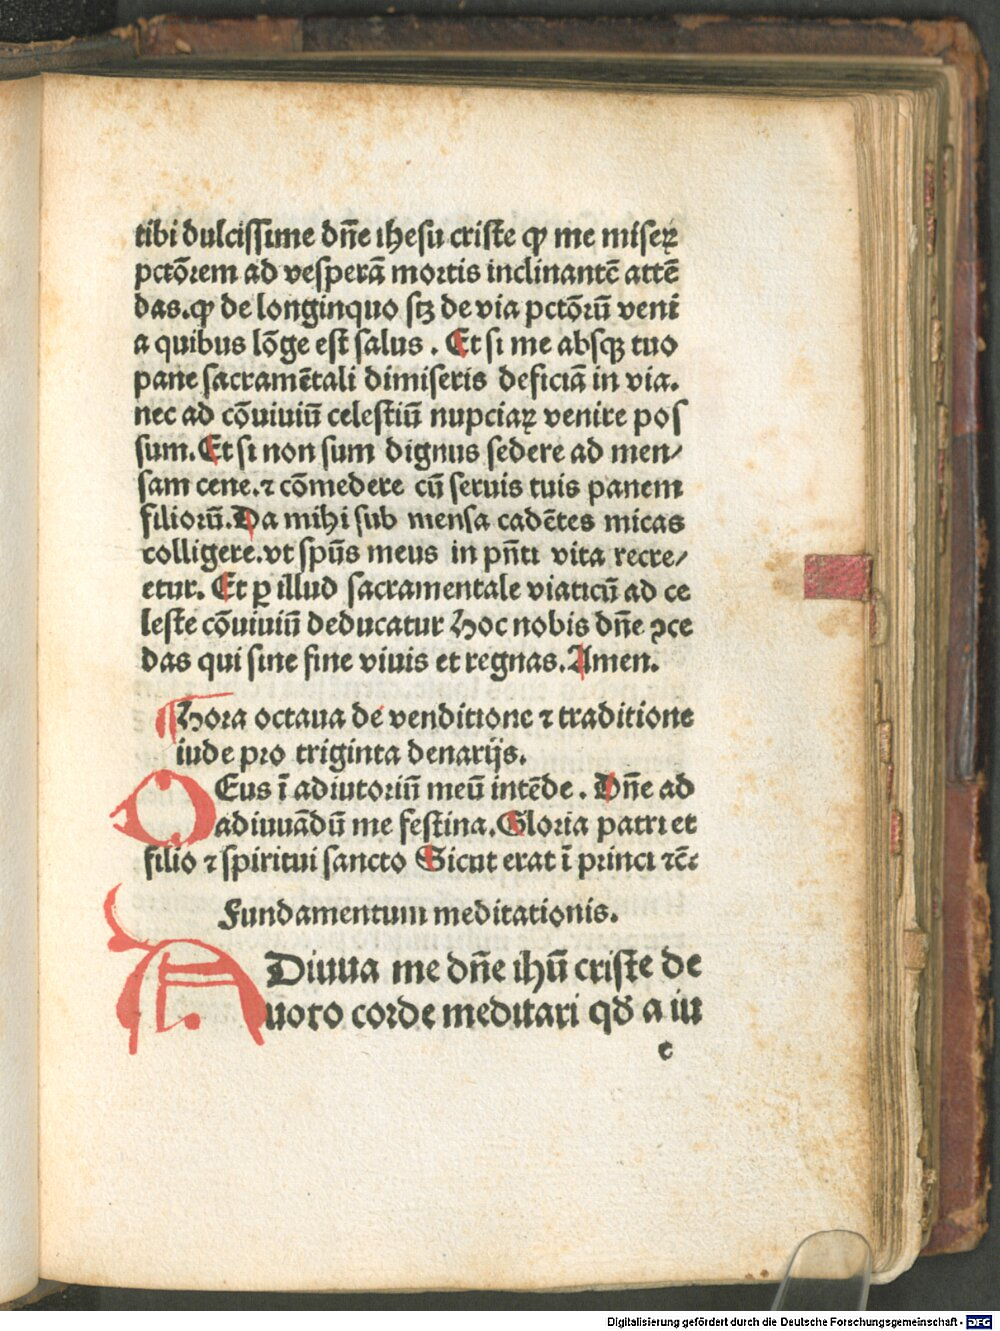 tibi dulcissime dñe ihesu criste ꝙ me miseꝝ
pctõrem ad vesperã mortis inclinantẽ attẽ
das.ꝙ de longinquo sꝫ de via pctõrũ veni
a quibus lõge est salus . Et si me absqꝫ tuo
pane sacramẽtali dimiseris deficiã in via.
nec ad cõuiuiũ celestiũ nupciaꝝ venire pos
sum. Et si non sum dignus sedere ad men⸗
sam cene.⁊ cõmedere cũ seruis tuis panem
filiorũ. Da mihi sub mensa cadẽtes micas
colligere.vt spũs meus in pñti vita recre⸗
etur. Et ꝑ illud sacramentale viaticũ ad ce
leste cõuiuiũ deducatur Hoc nobis dñe ꝯce
das qui sine fine viuis et regnas. Amen.
Hora octaua de venditione ⁊ traditione
iude pro triginta denarijs.
DEus ĩ adiutoriũ meũ intẽde . Dñe ad
adiuuãdũ me festina. Gloria patri et
filio ⁊ spiritui sancto Sicut erat ĩ princi ⁊c̃
Fundamentum meditationis.
ADiuua me dñe ihũ criste de
uoto corde meditari qđ a iu
c
Digitalisierung gefördert durch die Deutsche Forschungsgemeinschaft - DFG